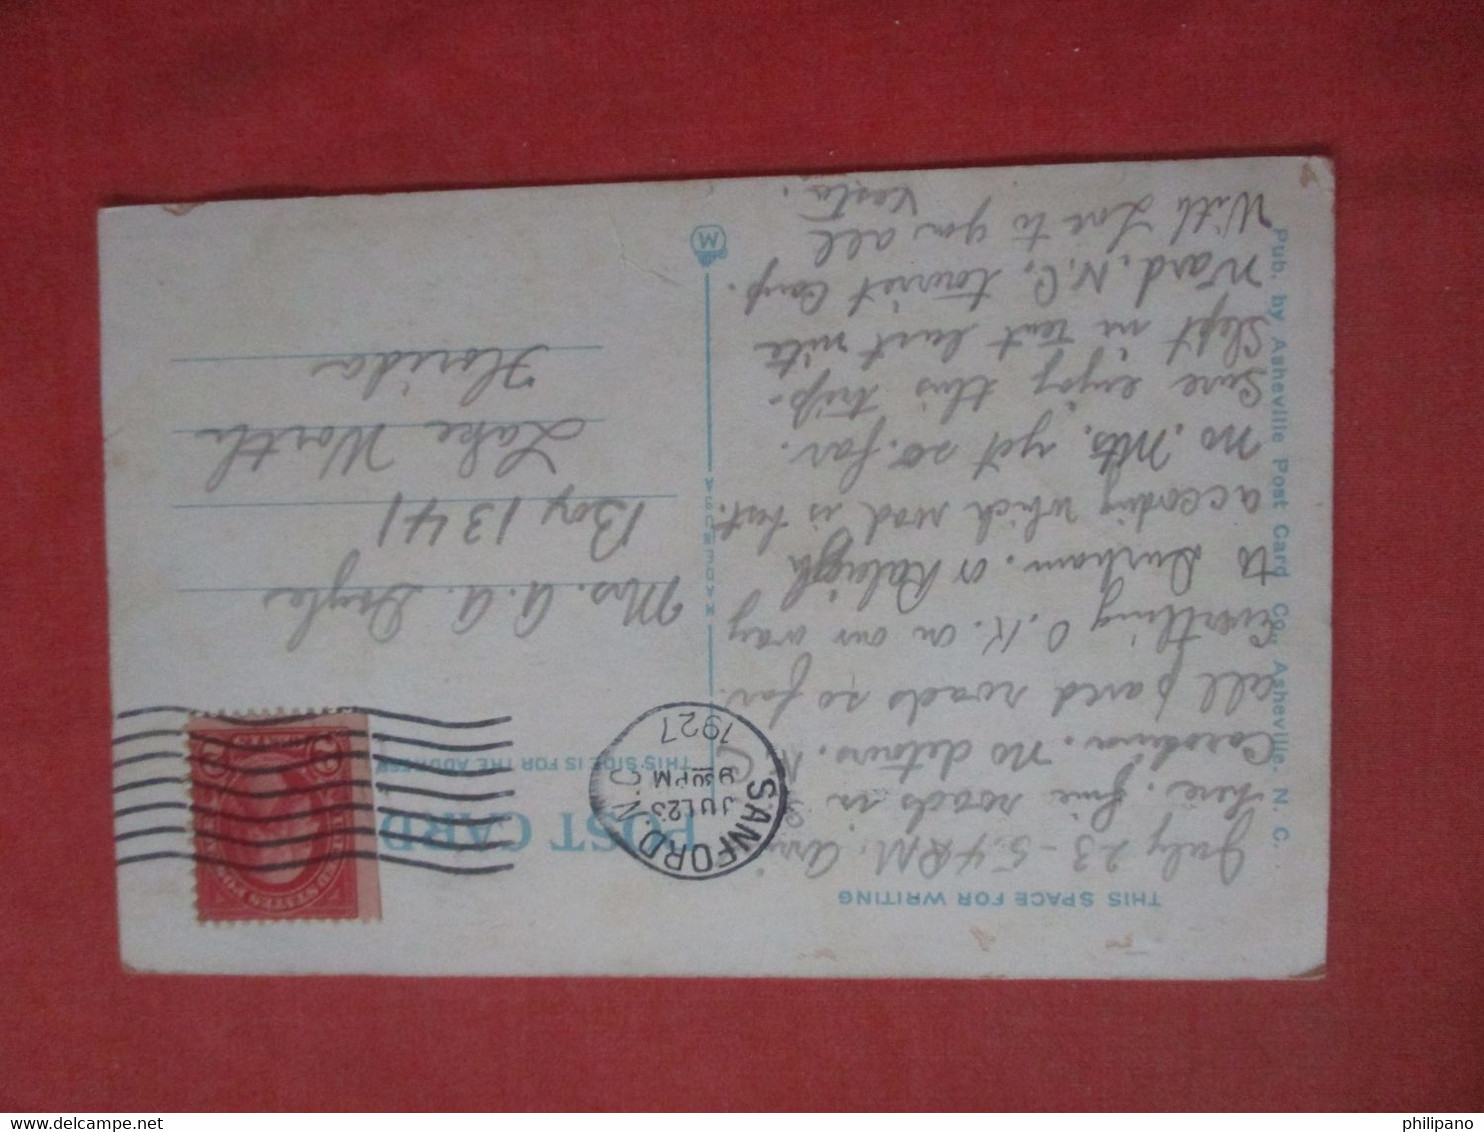 THIS SPACE FOR WRITING
July 23 - 5.40 P.M.
here. fine roads in
Carolina. No detours.
all paved roads so far.
Everthing O.K. on our way
to Durham. or Raleigh
according which road is best.
No. Mts. yet so far.
Sure enjoy this trip.
Slept in tent last nite
Ward, N.C, tourist Camp.
With Love to you all
Vesta.
Pub. by Asheville Post Card Co., Asheville, N. C.
MADE IN U.S.A.
M
POST CARD
THIS SIDE IS FOR THE ADDRESS
SANFORD. N.C.
JUL 23
9 30 PM
1927
Mrs. A. A.
Box 1341
Lake Worth
Florida
philipano